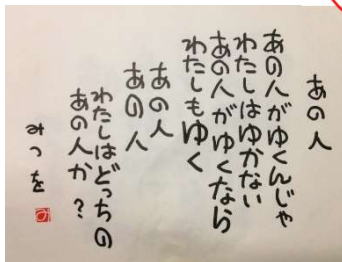 あの人
あの人がゆくんじゃ
わたしはゆかない
あの人がゆくなら
わたしもゆく
あの人
あの人
わたしはどっちの
あの人か?
みつを